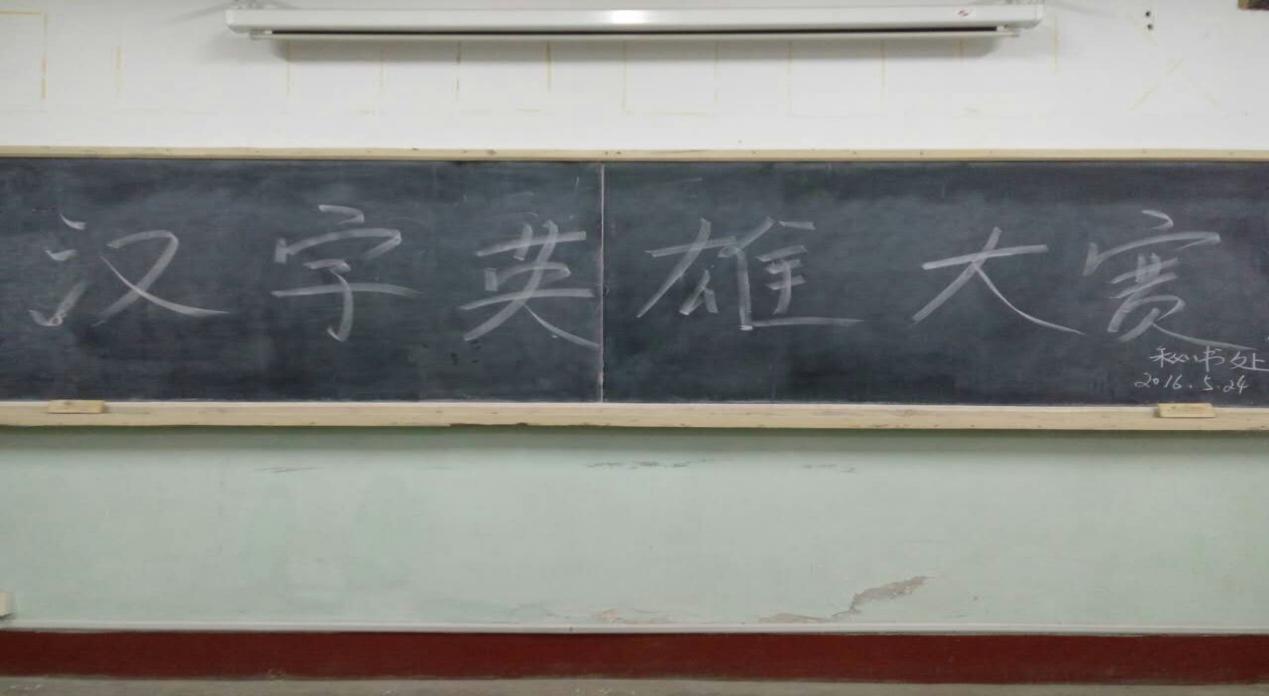 汉字英雄大赛
秘书处
2016.5.24